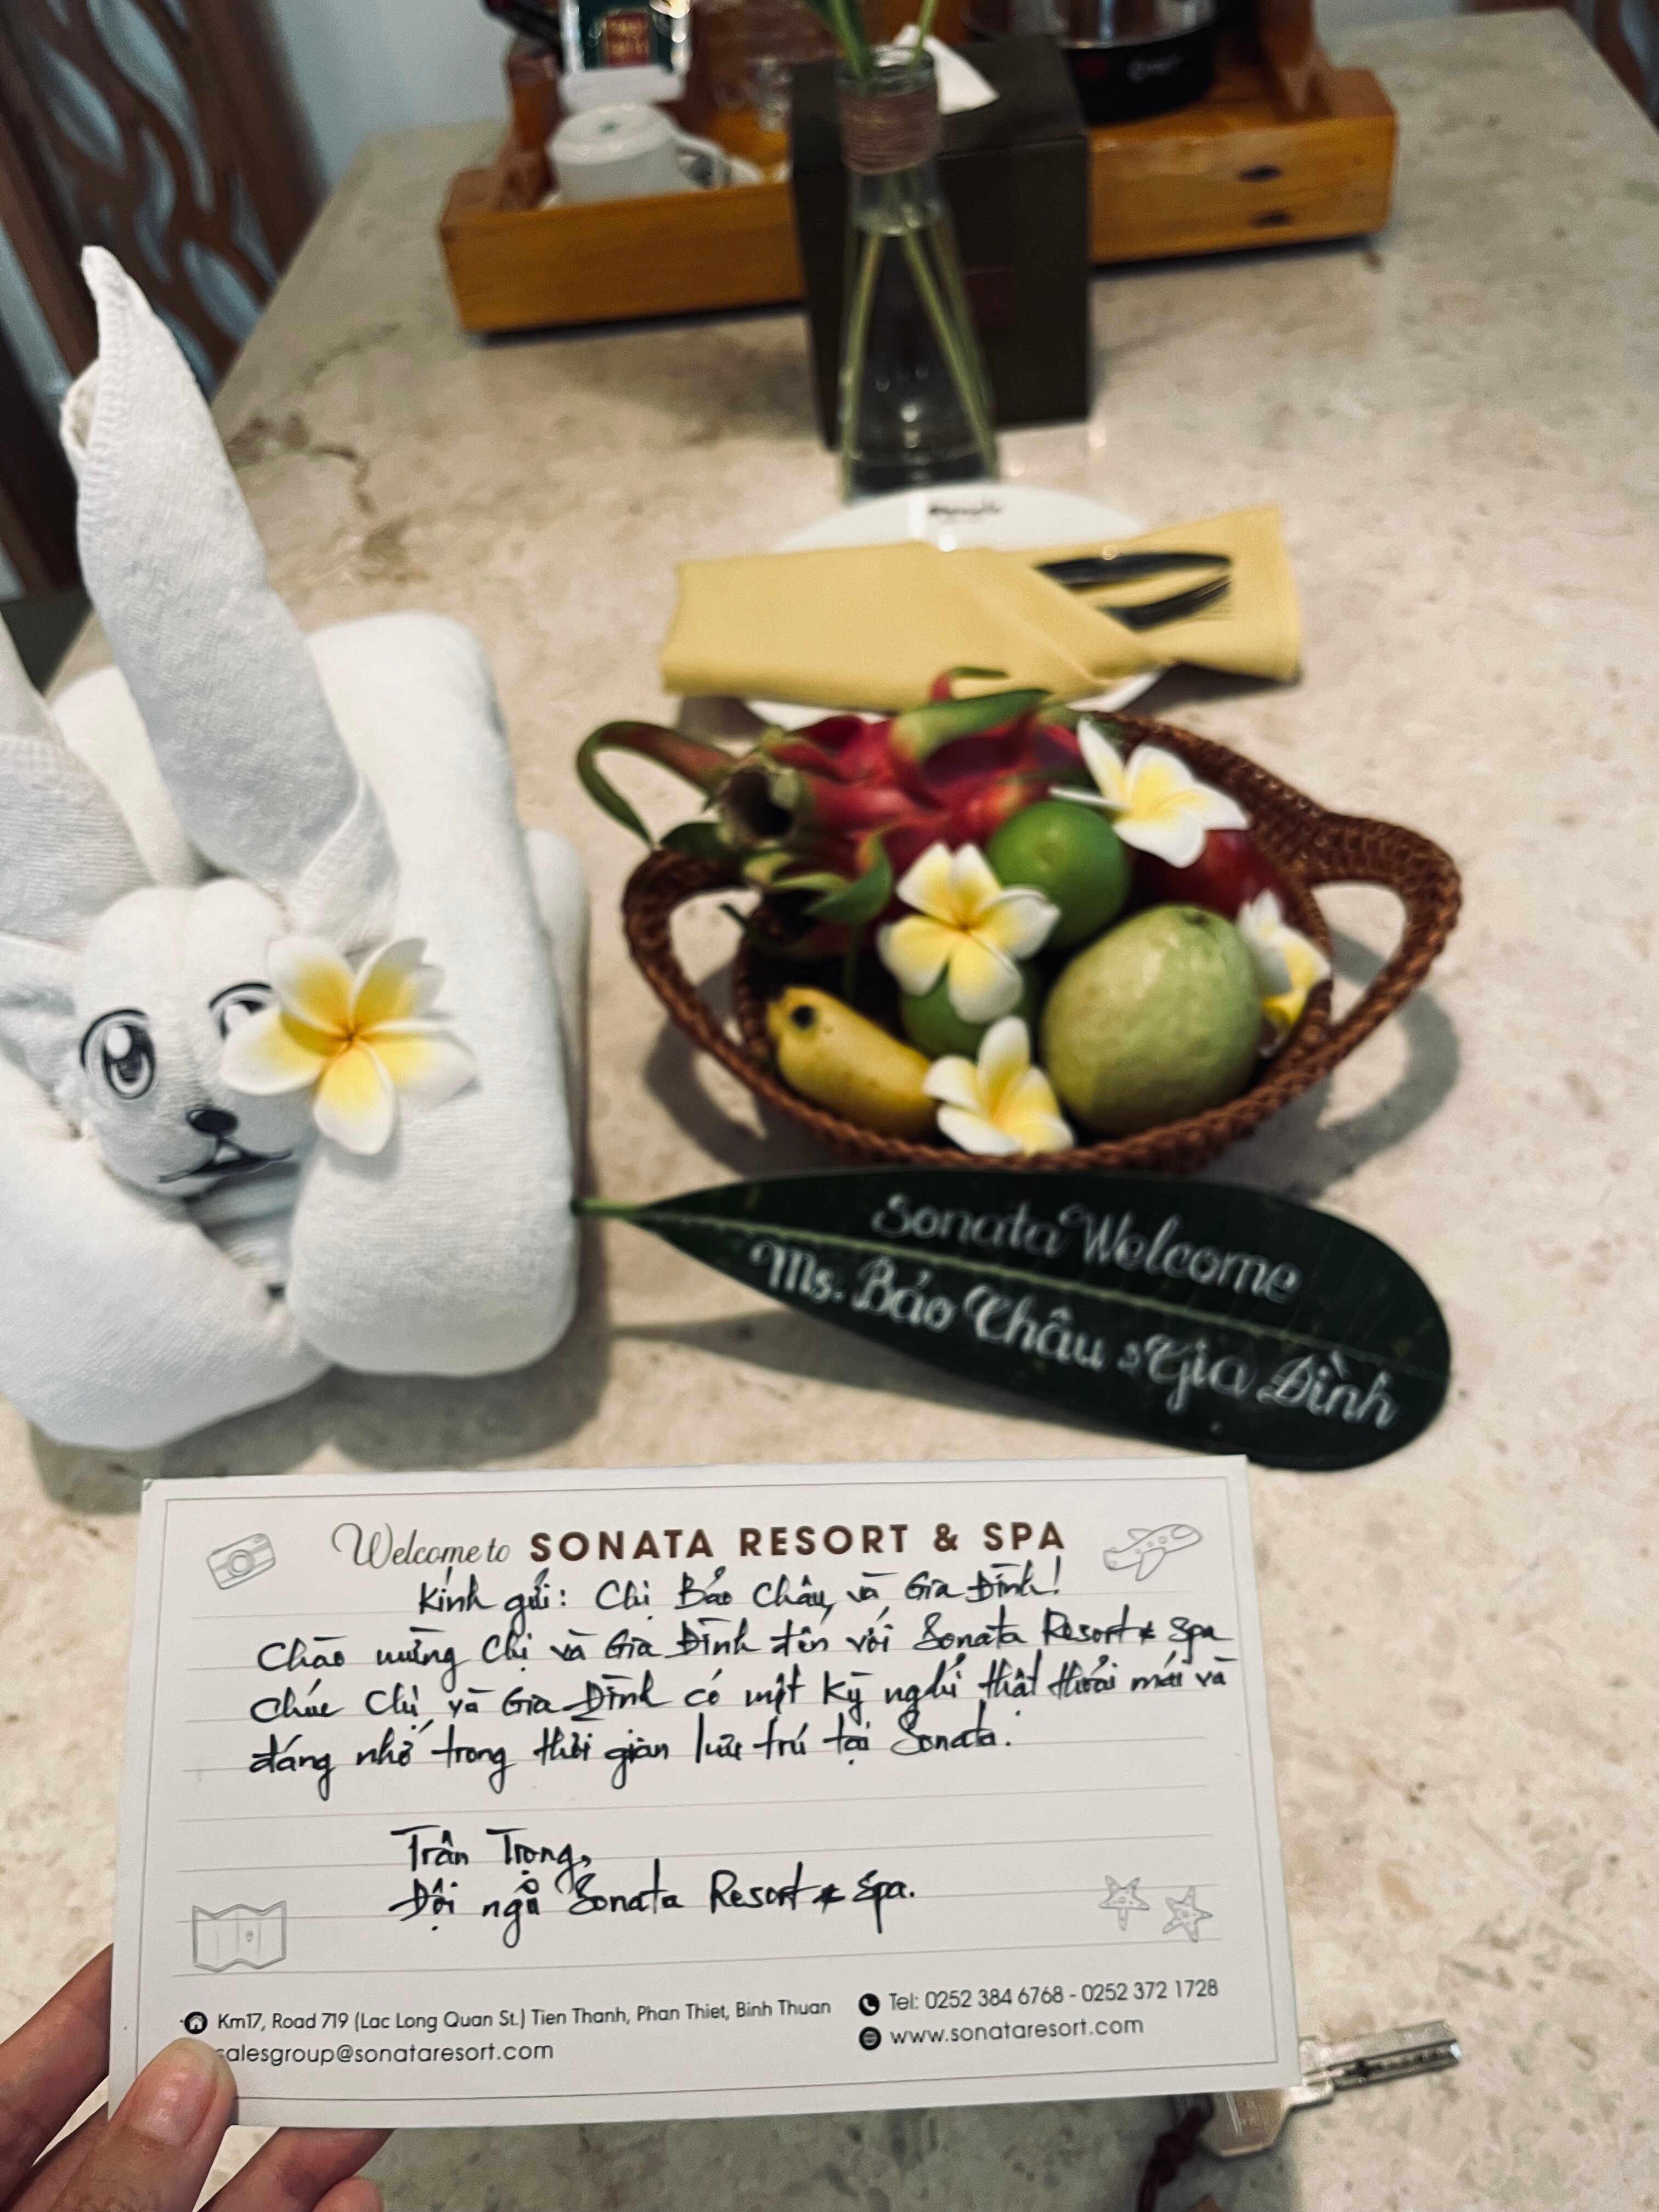 Sonata Welcome
Ms. Bảo Châu & Gia Đình
Welcome to SONATA RESORT & SPA
Kính gửi: Chị Bảo Châu và Gia Đình!
Chào mừng Chị và Gia Đình đến với Sonata Resort & Spa
Chúc Chị và Gia Đình có một kỳ nghỉ thật thoải mái và
đáng nhớ trong thời gian lưu trú tại Sonata.
Trân Trọng,
Đội ngũ Sonata Resort & Spa.
Km17, Road 719 (Lac Long Quan St.) Tien Thanh, Phan Thiet, Binh Thuan
salesgroup@sonataresort.com
Tel: 0252 384 6768 - 0252 372 1728
www.sonataresort.com